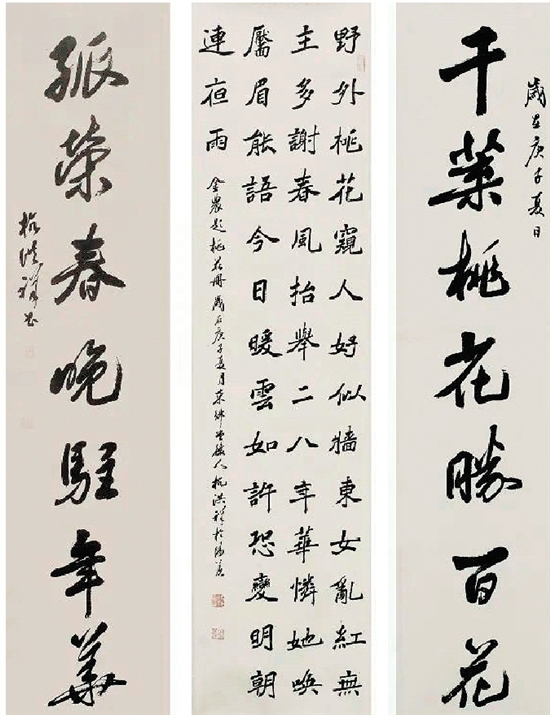 歲在庚子夏日
千葉桃花勝百花
野外桃花窺人好似牆東女亂紅無
主多謝春風抬舉二八年華憐她喚
靨眉能語今日暖雲如許恐變明朝
連夜雨
金農題桃花冊歲在庚子夏月東坡人杭洪祥於陽羨
孤榮春晚駐年華
杭洪祥書